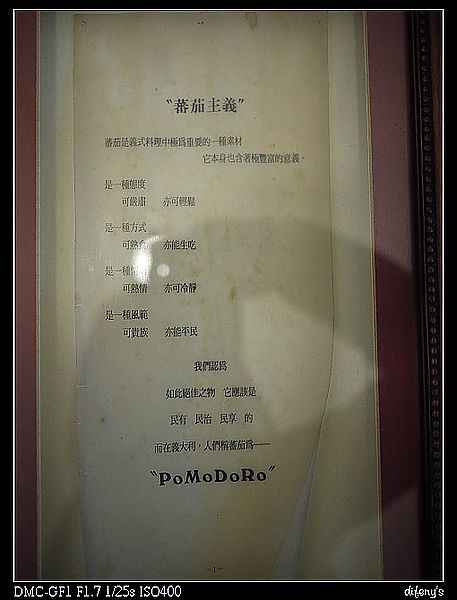 "蕃茄主義"
蕃茄是義式料理中極為重要的一種素材
它本身也含著極豐富的意義。
是一種態度
可嚴肅 亦可輕鬆
是一種方式
可熱食 亦能生吃
是一種
可熱情 亦可冷靜
是一種風範
可貴族 亦能平民
我們認為
如此絕佳之物 它應該是
民有 民治 民享 的
而在義大利，人們稱蕃茄為——
"PoMoDoRo"
—1—
DMC-GF1 F1.7 1/25s ISO400
difeny's